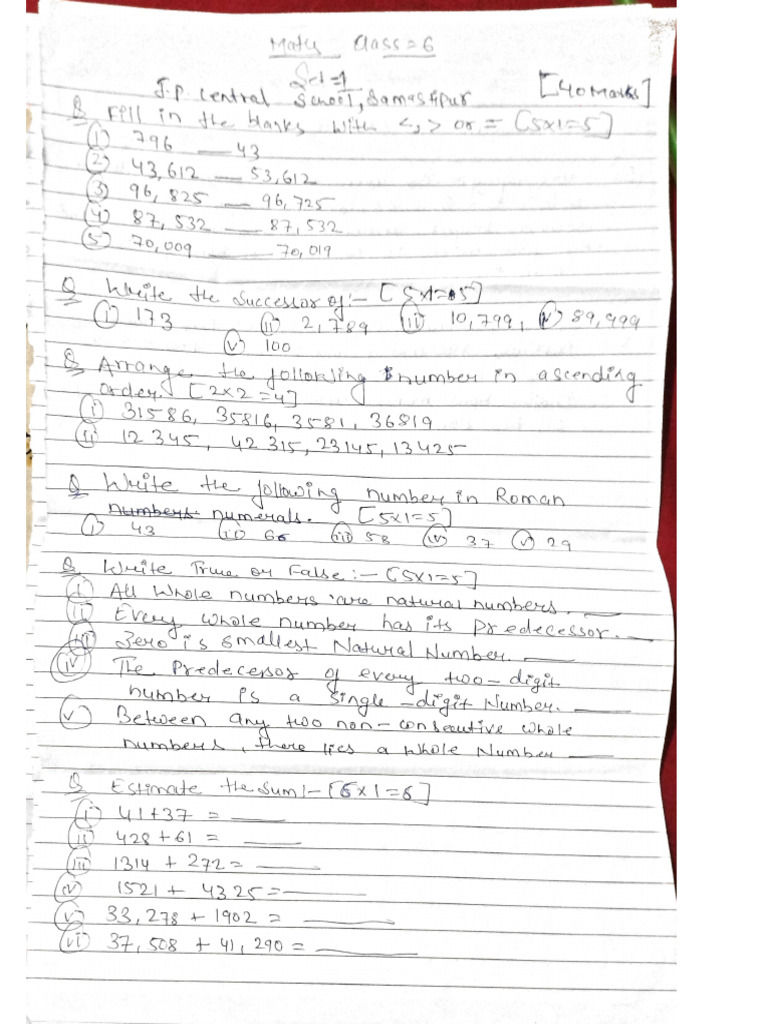 Math Class = 6
Set = 1
J.P. Central School, Samastipur [40 Marks]
Q Fill in the blanks with <, > or = [5x1=5]
(1) 796 __ 43
(2) 43,612 __ 53,612
(3) 96,825 __ 96,725
(4) 87,532 __ 87,532
(5) 70,009 __ 70,019
Q Write the successor of :- [5x1=5]
(i) 173 (ii) 2,789 (iii) 10,799, (iv) 89,999
(v) 100
Q Arrange the following number in ascending
order. [2x2=4]
(i) 31586, 35816, 3581, 36819
(ii) 12345, 42315, 23145, 13425
Q Write the following number in Roman
numbers numerals. [5x1=5]
(i) 43 (ii) 66 (iii) 58 (iv) 37 (v) 29
Q Write True or False :- [5x1=5]
(i) All whole numbers are natural numbers. __
(ii) Every whole number has its predecessor. __
(iii) Zero is smallest Natural Number. __
(iv) The Predecessor of every two-digit
number is a single-digit Number. __
(v) Between any two non-consecutive whole
numbers, there lies a whole Number __
Q Estimate the sum :- [6x1=6]
(i) 41+37 = __
(ii) 428+61 = __
(iii) 1314 + 272 = __
(iv) 1521 + 4325 = __
(v) 33,278 + 1902 = __
(vi) 37,508 + 41,290 = __